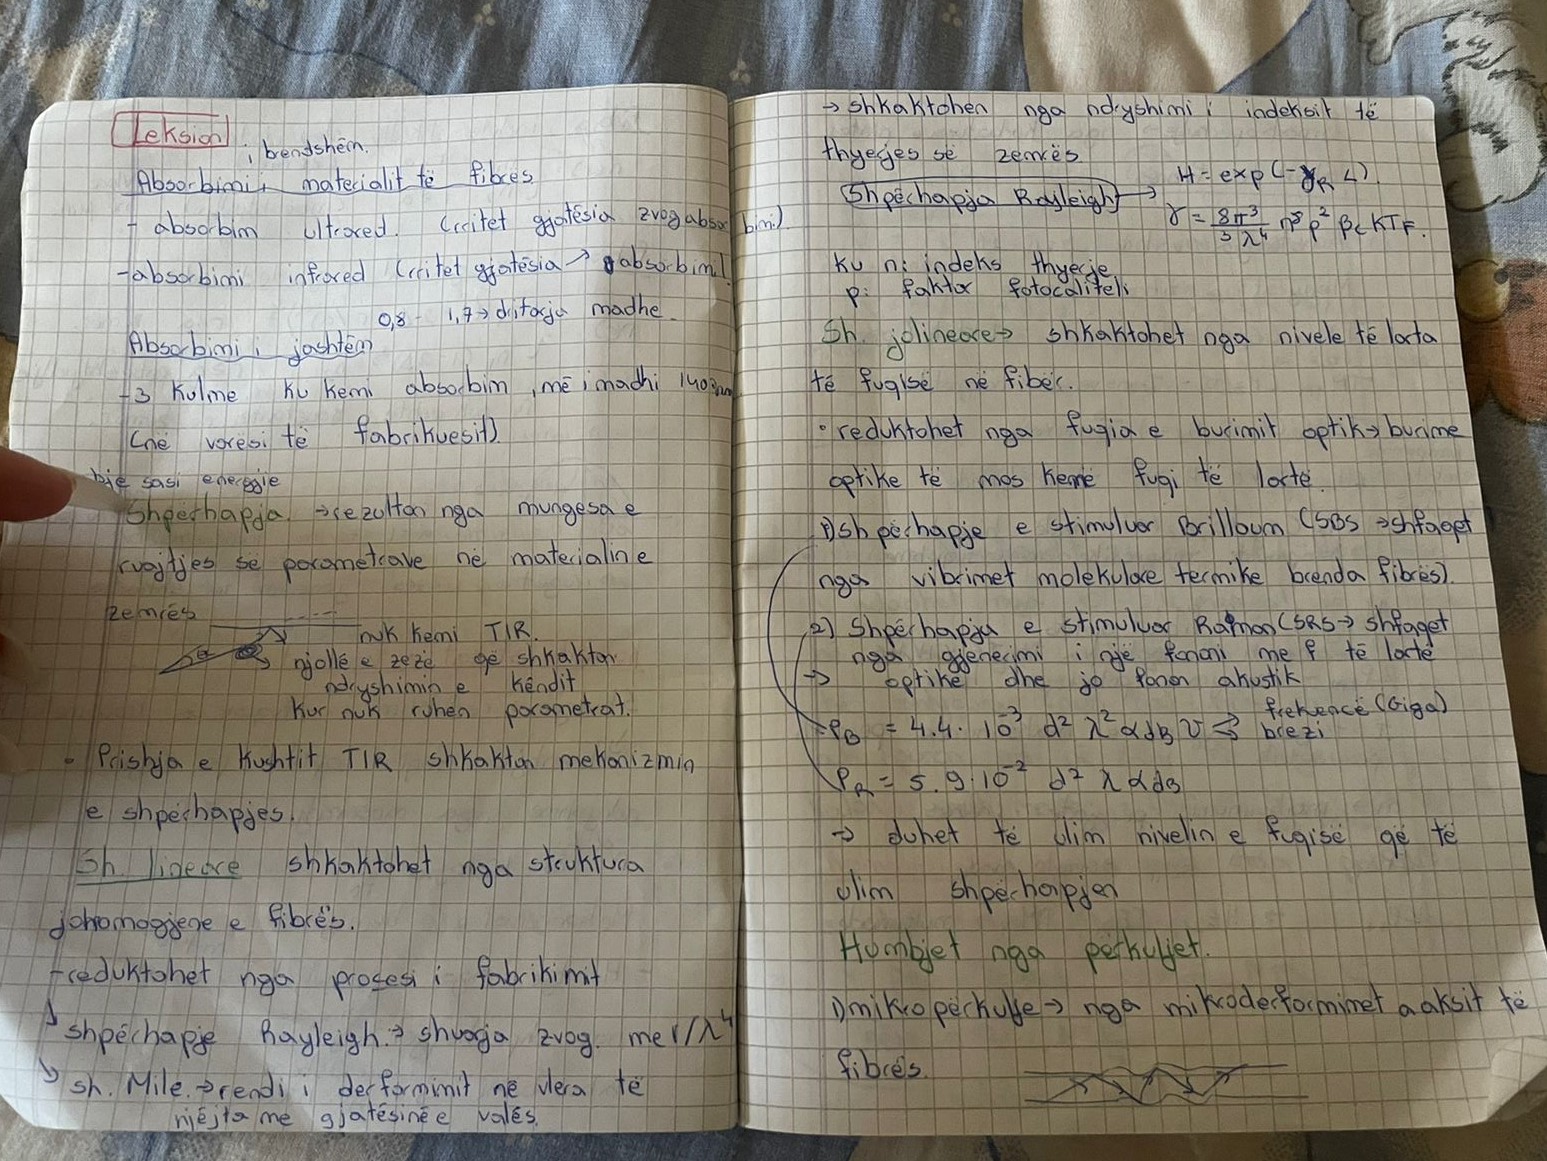 Leksion
i bendshëm.
Absorbimi i materialit të fibrës
- absorbim ultraed. (rritet gjatësia zvog absorbim.)
- absorbimi infrared (rritet gjatësia ↗ absorbimi)
0,8 - 1,7 → dritarja madhe
Absorbimi i jashtëm
- 3 kulme ku kemi absorbim, më i madhi 1403nm
(në varësi të fabrikuesit)
një sasi energjie
Shpërhapja → rezulton nga mungesa e
ruajtjes së parametrave në materialin e
zemrës
nuk kemi TIR.
njollë e zezë që shkakton
ndryshimin e këndit
kur nuk ruhen parametrat.
• Prishja e kushtit TIR shkakton mekanizmin
e shpërhapjes.
Sh. lineare shkaktohet nga struktura
johomogjene e fibrës.
- reduktohet nga procesi i fabrikimit
↳ shpërhapje Rayleigh → shuarja zvog. me 1/λ⁴
↳ sh. Mile. → rendi i derformimit në vlera të
njëjta me gjatësinë e valës.
→ shkaktohen nga ndryshimi i indeksit të
thyerjes së zemrës
Shpërhapja Rayleigh → H = exp(-γR L)
γ = 8π³/3λ⁴ n⁸ p² βc KTF.
ku n: indeks thyerje
p: faktor fotocaliteli
Sh. jolineare → shkaktohet nga nivele të larta
të fuqisë në fibër.
• reduktohet nga fuqia e burimit optik → burime
optike të mos kenë fuqi të lartë.
1) shpërhapje e stimuluar Brilloum (SBS → shfaqet
nga vibrimet molekulare termike brenda fibrës).
2) Shpërhapja e stimuluar Raman (SRS → shfaqet
nga gjenerimi i një fononi me f të lartë
→ optikë dhe jo fonon akustik
PB = 4.4 · 10⁻³ d² λ² αdB ν ⇒ frekencë (Giga)
brezi
PR = 5.9 · 10⁻² d² λ αdB
→ duhet të ulim nivelin e fuqisë që të
ulim shpërhapjen
Humbjet nga përkuljet.
1) mikropërkulje → nga mikroderformimet a aksit të
fibrës.